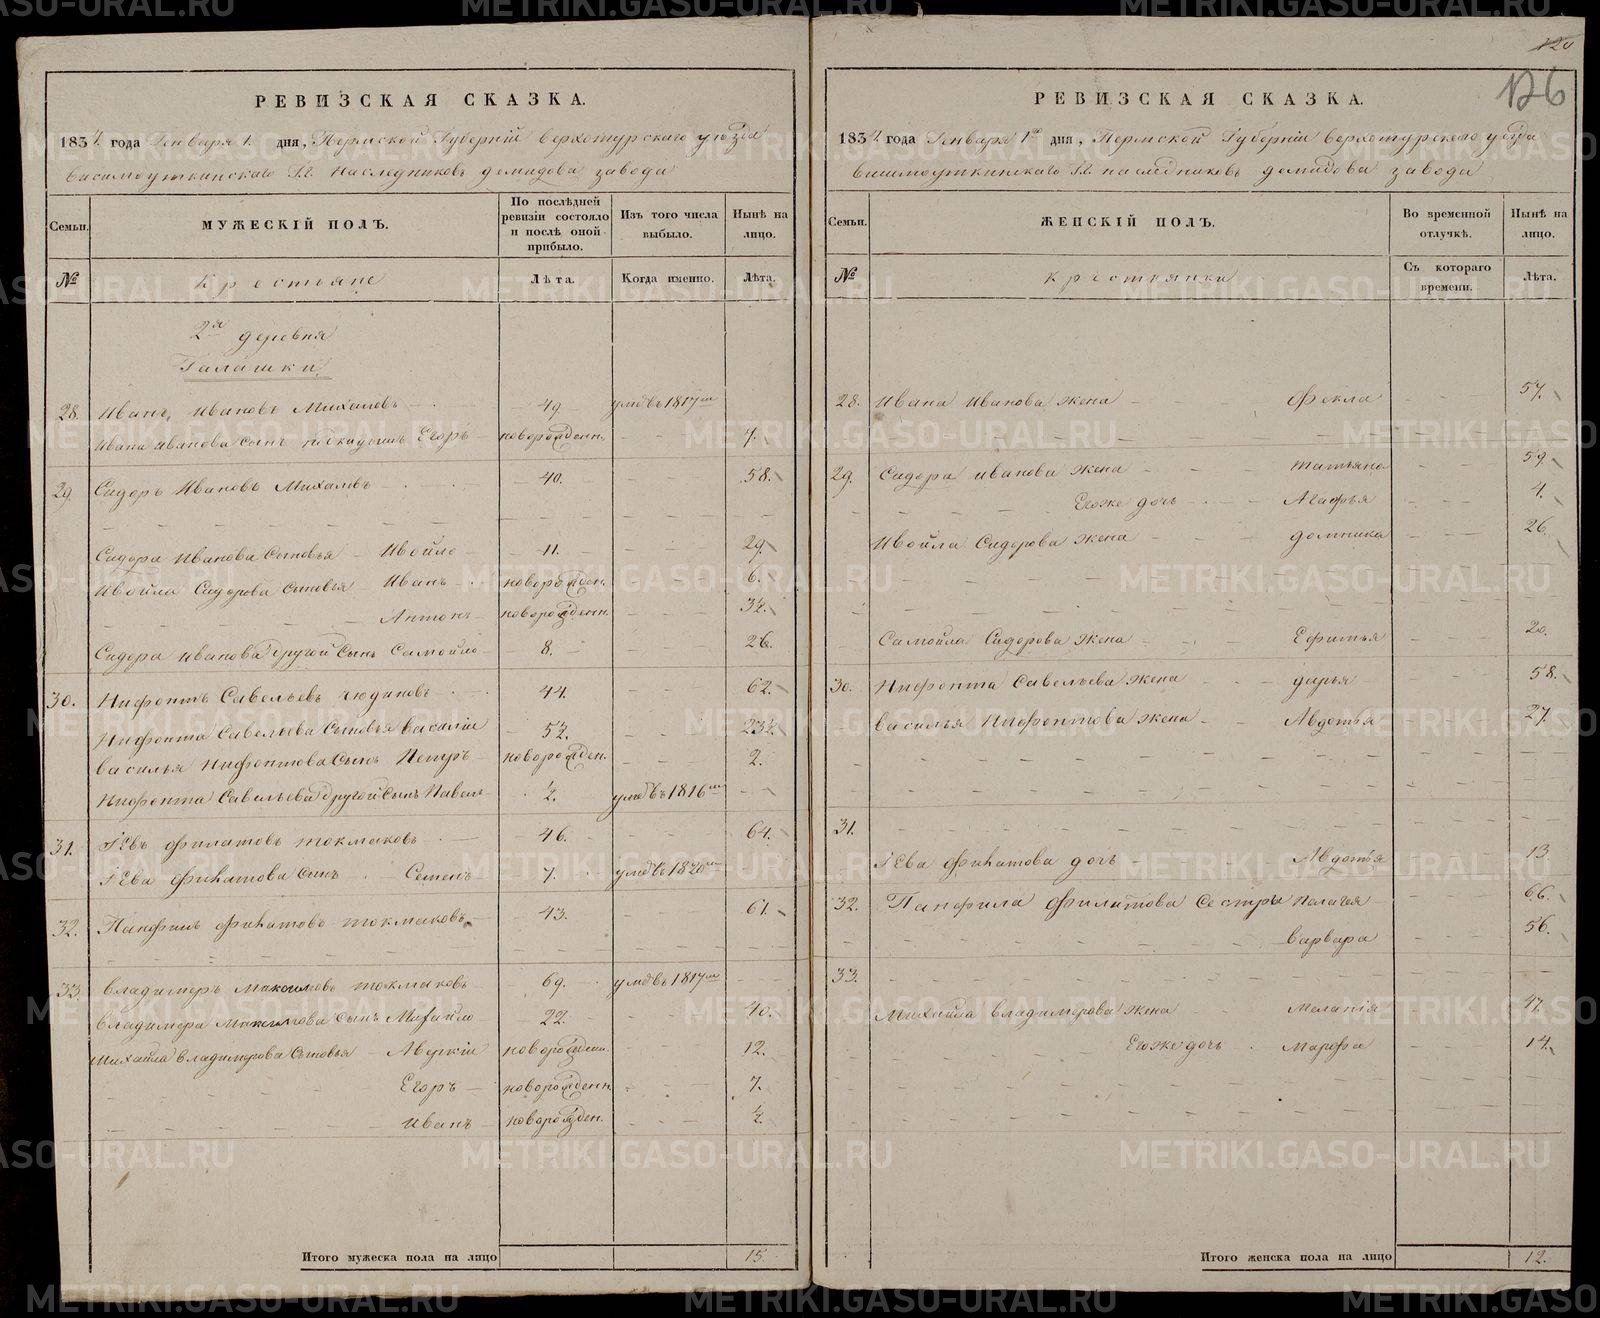 120
126
РЕВИЗСКАЯ СКАЗКА.
1834 года Генваря 1. дня, Пермской Губерніи верхотурскаго уѣзда
висимоуткинскаго Г.г. наследниковъ демидова завода
Семьи.
МУЖЕСКІЙ ПОЛЪ.
По послѣдней ревизіи состояло и послѣ оной прибыло.
Изъ того числа выбыло.
Нынѣ на лицо.
№
Крестьяне
Лѣта.
Когда именно.
Лѣта.
2я деревня
Галашки
28. Иванъ Ивановъ Михалевъ 49 умѣ въ 1817м
Ивана Иванова сынъ подкидышъ Егоръ новорожденн. 7.
29. Сидоръ Ивановъ Михалевъ 40. 58.
Сидора Иванова Сыновья Ивойло 11. 29
Ивойла Сидорова Сыновья Иванъ новорожден. 6.
Антонъ новорожденн. 3½.
Сидора Иванова другой Сынъ Самойло 8. 26.
30. Нифонтъ Савельевъ чюдиновъ 44. 62.
Нифонта Савельева Сыновья василіе 5½. 23½.
василья Нифонтова Сынъ Петръ новорожден. 2.
Нифонта Савельева другой Сынъ Павелъ ½. умѣ въ 1816м
31. Іевъ филатовъ токмаковъ 46. 64.
Іева филатова Сынъ Семенъ 7. умѣ въ 1820м
32. Панфилъ филатовъ токмаковъ 43. 61.
33. владимеръ Максимовъ токмаковъ 69. умѣ въ 1817м
владимера Максимова Сынъ Михайло 22. 40.
Михайла владимерова Сыновья Аверкіе новорожден. 12.
Егоръ новорожденн 7.
Иванъ новорожден. ½.
Итого мужеска пола на лицо 15.
РЕВИЗСКАЯ СКАЗКА.
1834 года Генваря 1го дня, Пермской Губерніи верхотурскаго уѣзда
висимоуткинскаго Г.г. наследниковъ демидова завода
Семьи.
ЖЕНСКІЙ ПОЛЪ.
Во временной отлучкѣ.
Нынѣ на лицо.
№
крестьянки
Съ котораго времени.
Лѣта.
28. Ивана Иванова жена Фекла 57.
29. Сидора иванова жена татьяна 59.
Егоже дочь Агафья 4.
Ивойла Сидорова жена домника 26.
Самойла Сидорова жена Ефимья 20.
30. Нифонта Савельева жена дарья 58.
василья Нифонтова жена Авдотья 27.
31.
Іева филатова дочь Авдотья 13.
32. Панфила филатова Сестры Палагея 66.
варвара 56.
33.
Михайла владимерова жена Меланія 47.
Егоже дочь Марфа 14.
Итого женска пола на лицо 12.
METRIKI.GASO-URAL.RU